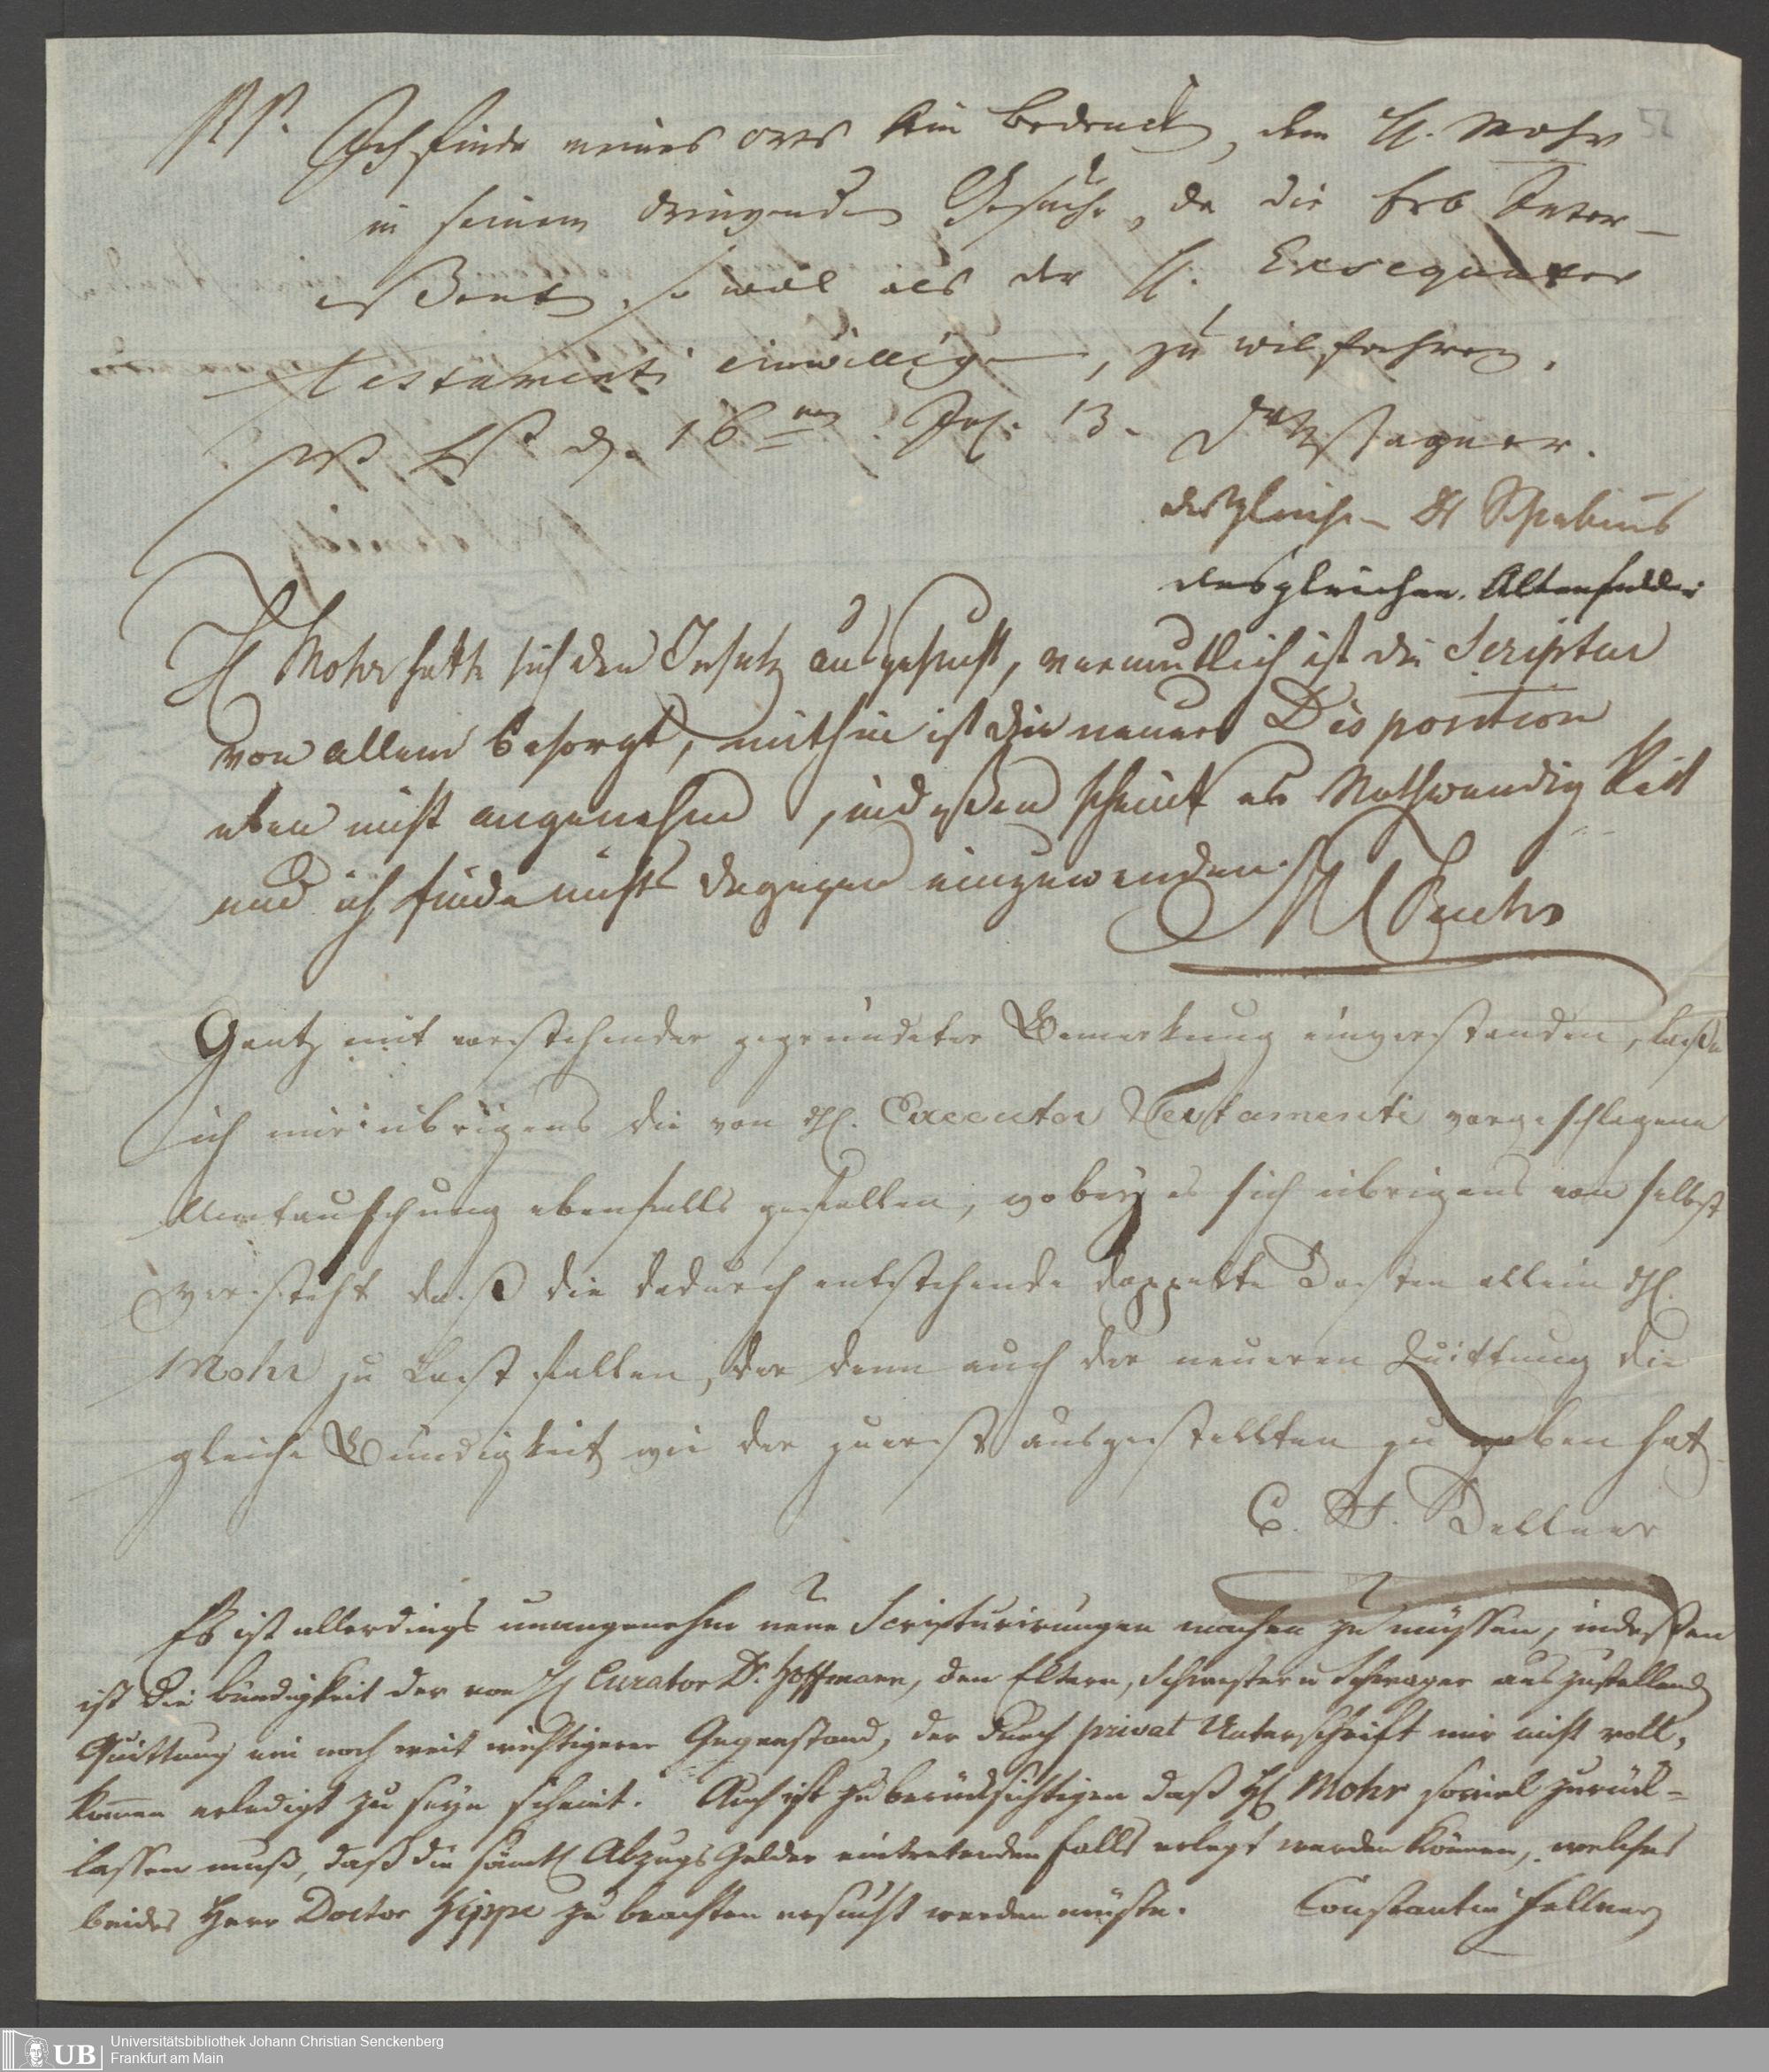 PP. Ich finde meines orts kein Bedencken, dem H. Mohr
in seinem dringenden Gesuche, da die Erb Inter-
essenten so wol als der H. Exsequutor
Testamenti einwilligen, zu wilfahren.
d. 16ten Jul. 13. Dr Wagner.
desgleichen Dr
desgleichen.
H Mohr hatte sich den Ersatz ausgesucht, vermutlich ist die Scriptur
von allem besorgt, mithin ist die neuere Disposition
eben nicht angenehm, indeßen scheint es Nothwendigkeit
und ich finde nichts dagegen einzuwenden. Fuchs
Gantz mit vorstehender gegründeter Bemerkung einverstanden, laße
ich mir übrigens die von H. Executor Testamenti vorgeschlagene
Umtauschung ebenfalls gefallen, wobey es sich übrigens von selbst
versteht daß die dadurch entstehende doppelte Kosten allein H.
Mohr zu Last fallen, der denn auch der neueren Quittung die
gleiche Bündigkeit wie der zuerst ausgestellten zu geben hat.
C. F. Kellner
Es ist allerdings unangenehm neue Scripturirungen machen zu müssen, indessen
ist die bündigkeit der von H Curator Dr. Hoffmann, den Eltern, Schwester u Schwager auszustellenden
Quittung ein noch weit wichtigerer Gegenstand, der durch privat Unterschrift mir nicht voll,
kommen erledigt zu seyn scheint. Auch ist zu berücksichtigen daß H Mohr soviel zurück-
lassen muß, daß die sämtl Abzugs Gelder eintretenden falls erlegt werden können, welches
beides Herr Doctor Hippe zu beachten ersucht werden müste. Constantin Fellner
52
UB
Universitätsbibliothek Johann Christian Senckenberg
Frankfurt am Main